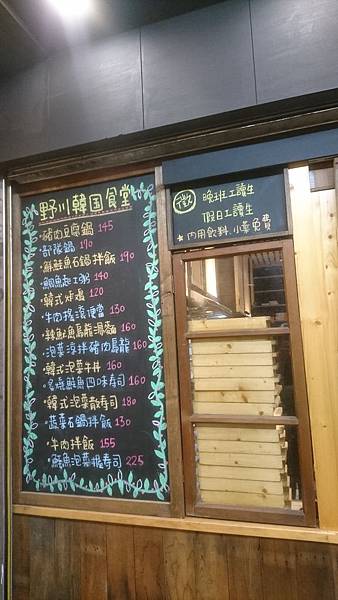 野川韓国食堂
・豬肉豆腐鍋 145
・部隊鍋 170
・鮭魚石鍋拌飯 190
・鯛魚起士粥 140
・韓式炸雞 120
・牛肉搖滾便當 130
・辣魷魚烏龍湯麵 160
・泡菜涼拌豬肉烏龍 160
・韓式泡菜牛丼 160
・炙燒鮭魚四味壽司 160
・韓式泡菜散壽司 180
・蔬菜石鍋拌飯 130
・牛肉拌飯 155
・鮭魚泡菜捲壽司 225
徵 晚班工讀生
假日工讀生
★ 內用飲料、小菜免費